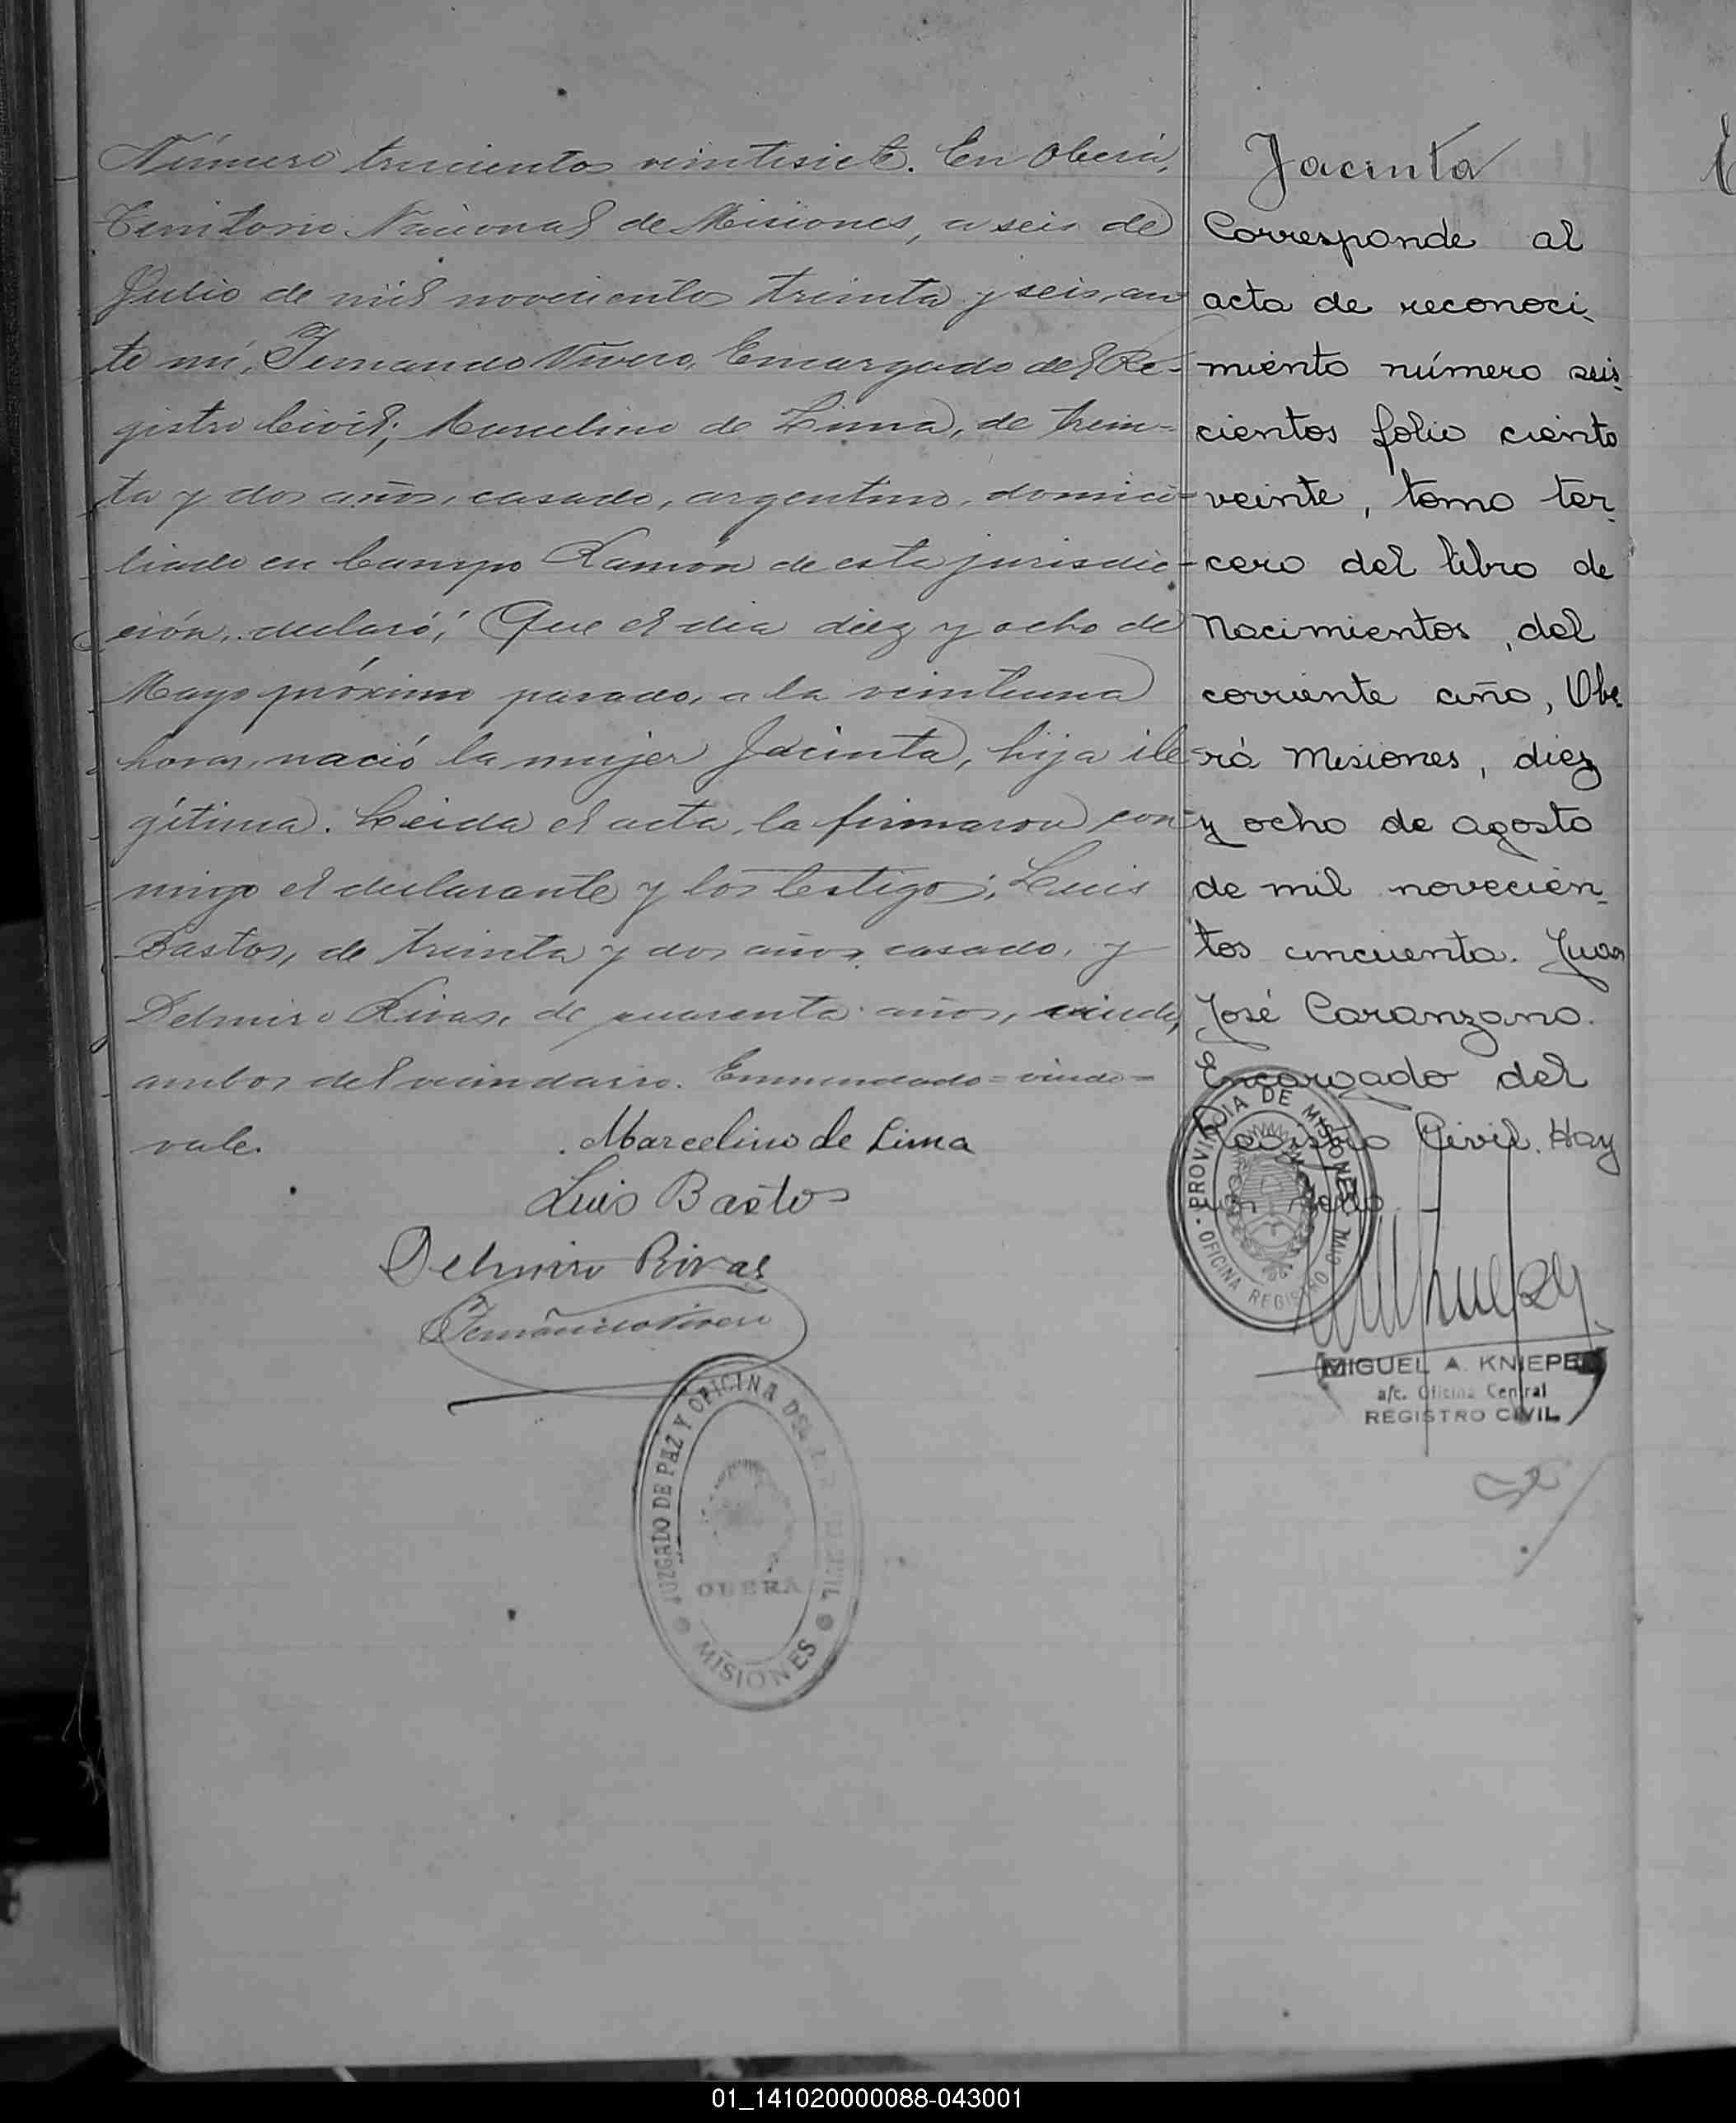 Número trescientos veintisiete. En Oberá,
Territorio Nacional de Misiones, a seis de
Julio de mil novecientos treinta y seis, an
te mí, Fernando Vivero, Encargado del Re-
gistro Civil; Marcelino de Lima, de trein-
ta y dos años, casado, argentino, domici-
liado en Campo Ramón de esta jurisdic-
ción, declaró; Que el dia diez y ocho de
Mayo próximo pasado, a la veintiuna
horas, nació la mujer Jacinta, hija ile
gítima. Leida el acta, la firmaron con-
migo el declarante y los testigos; Luis
Bastos, de treinta y dos años, casado, y
Delmiro Rivas, de cuarenta años, viudo,
ambos del vecindario. Enmendado = viudo =
vale.
Marcelino de Lima
Luis Bastos
Delmiro Rivas
Fernando Vivero
JUZGADO DE PAZ Y OFICINA DEL
OBERÁ
MISIONES
Jacinta
Corresponde al
acta de reconoci-
miento número seis-
cientos folio ciento
veinte, tomo ter-
cero del libro de
Nacimientos, del
corriente año, Obe-
rá Misiones, diez
y ocho de agosto
de mil novecien-
tos cincuenta. Juan
José Caranzano.
Encargado del
Registro Civil. Hay
un sello
PROVINCIA DE MISIONES
OFICINA REGISTRO CIVIL
MIGUEL A. KNIEPE
a/c. Oficina Central
REGISTRO CIVIL
01_141020000088-043001